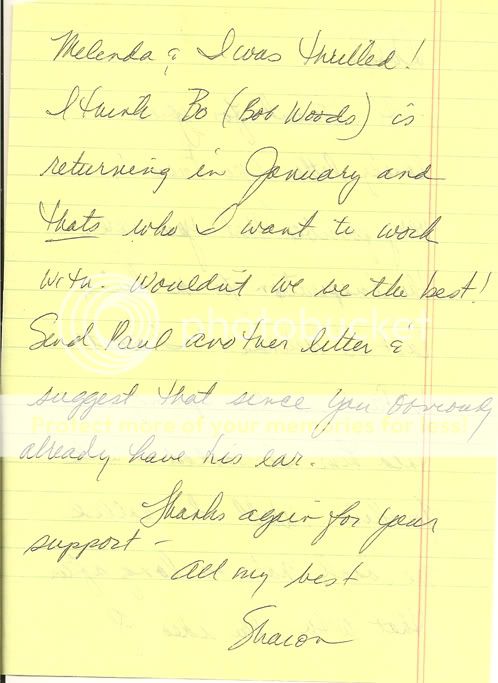 Melenda & I was thrilled!
I think Bo (Bob Woods) is
returning in January and
thats who I want to work
with. Wouldn't we be the best!
photobucket
Send Paul another letter &
suggest that since you obviously
Protect more of your memories for less!
already have his ear.
Thanks again for your
support -
All my best
Sharon